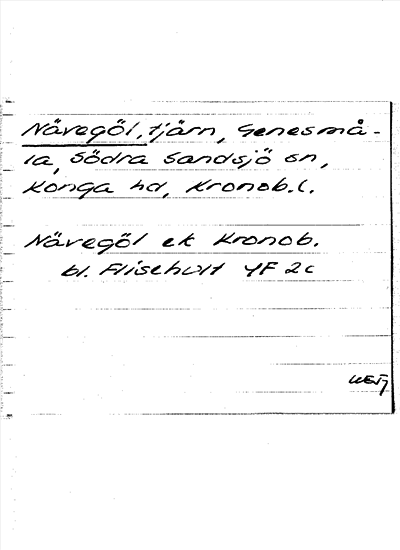 Nävegöl, tjärn, Genesmå-
la, södra Sandsjö sn,
Konga hd, Kronob.l.
Nävegöl ek Kronob.
bl. Fliseholt 4F 2c